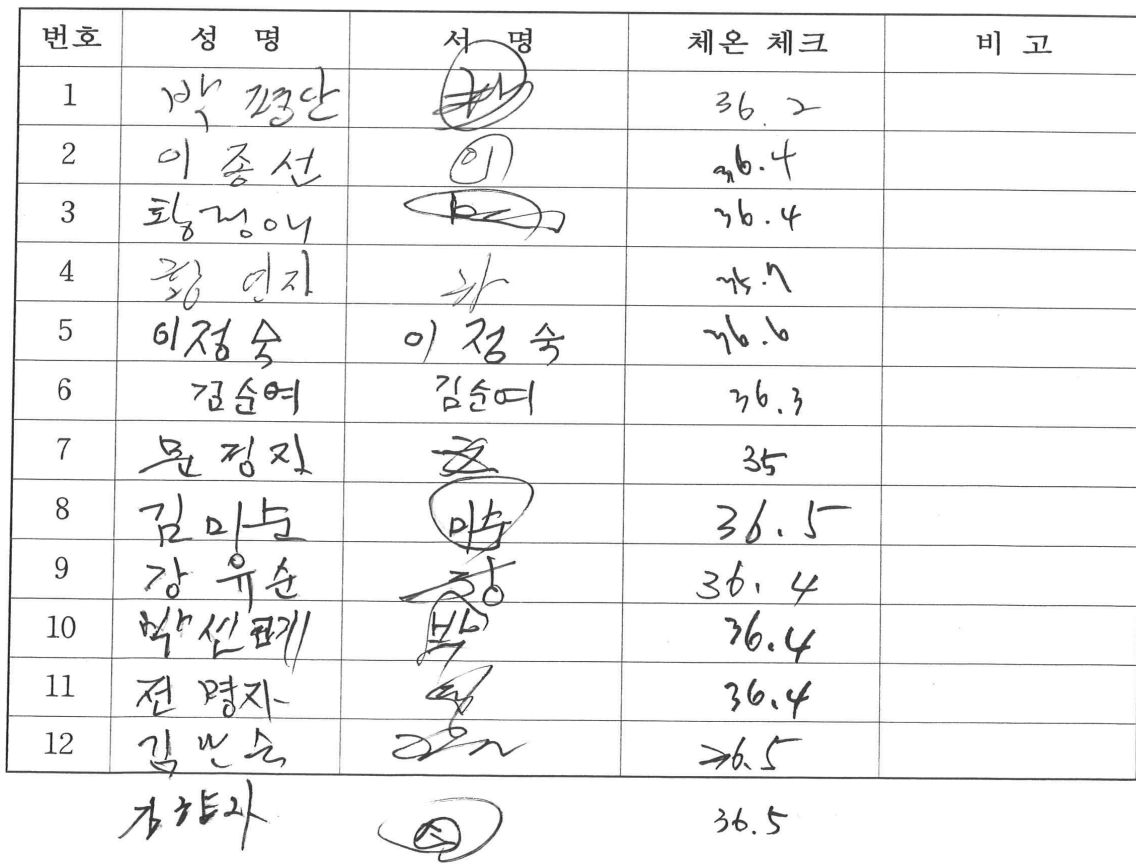 번호 성 명 서 명 체온 체크 비 고
1 박 36.2
2 이 종선 이 36.4
3 36.4
4 황 연자 35.7
5 이정숙 이 정 숙 36.6
6 김순여 김순여 36.3
7 문 정자 35
8 김미순 미순 36.5
9 강 유순 강 36.4
10 박선 박 36.4
11 전 명자 36.4
12 김 36.5
김 36.5